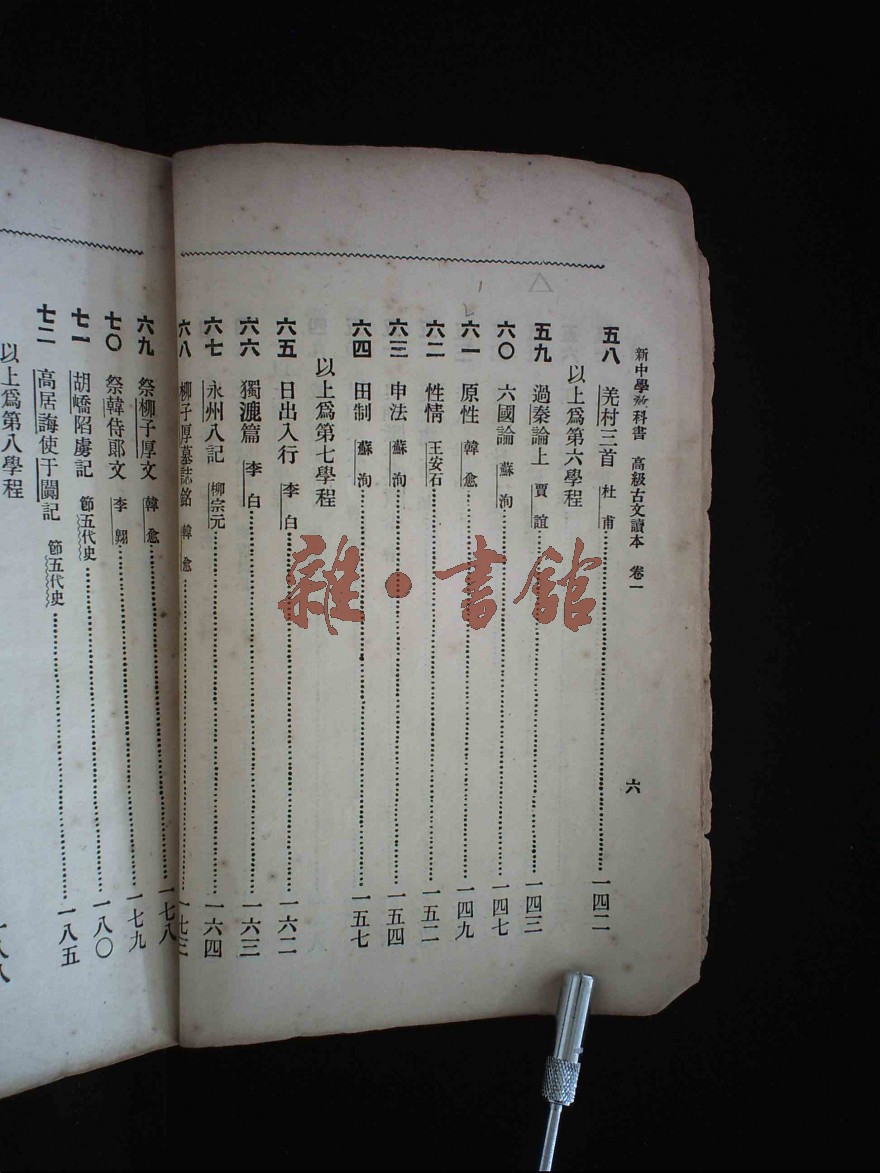 新中學教科書 高級古文讀本 卷一 六
五八 羌村三首 杜甫 一四二
以上爲第六學程
五九 過秦論上 賈誼 一四三
六〇 六國論 蘇洵 一四七
六一 原性 韓愈 一四九
六二 性情 王安石 一五二
六三 申法 蘇洵 一五四
六四 田制 蘇洵 一五七
以上爲第七學程
六五 日出入行 李白 一六二
六六 獨漉篇 李白 一六三
六七 永州八記 柳宗元 一六四
六八 柳子厚墓誌銘 韓愈 一七三
六九 祭柳子厚文 韓愈 一七八
七〇 祭韓侍郎文 李翱 一七九
七一 胡嶠陷虜記 節五代史 一八〇
七二 高居誨使于闐記 節五代史 一八五
以上爲第八學程
一八八
雜·書館